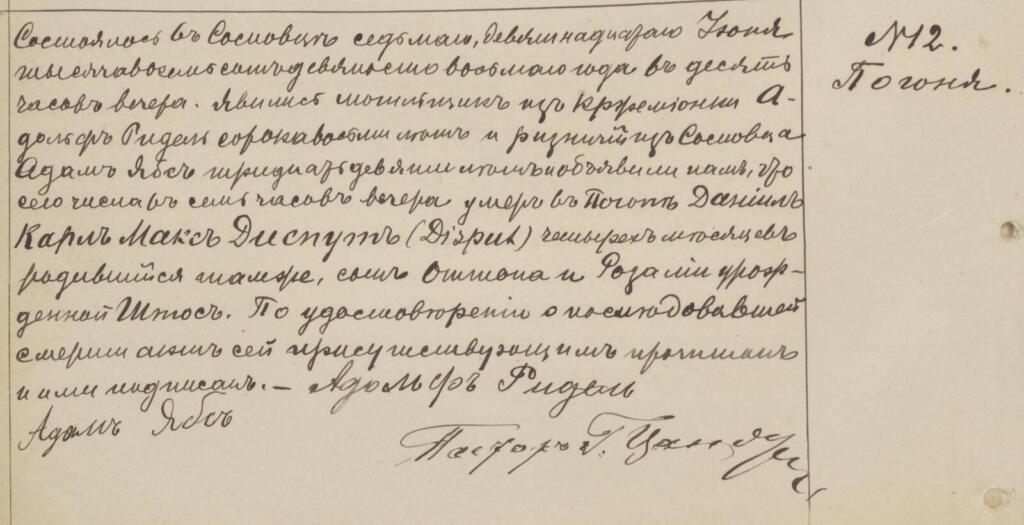 Состоялось въ Сосновцѣ седьмаго, девятнадцатаго Іюня
тысяча восемьсотъ девяносто восьмаго года въ десять
часовъ вечера. Явились могильщикъ изъ Кржеміонки А-
дольфъ Ридель сорока восьми лѣтъ и ризничій изъ Сосновца
Адамъ Ябсъ тридцати девяти лѣтъ и объявили намъ, что
сего числа въ семь часовъ вечера умеръ въ Погонѣ Даніилъ
Карлъ Максъ Диспутъ (Disput) четырехъ мѣсяцевъ
родившійся тамже, сынъ Оттона и Розаліи урож-
денной Штосъ. По удостовѣреніи о послѣдовавшей
смерти актъ сей присутствующимъ прочитанъ
и ими подписанъ. — Адольфъ Ридель
Адамъ Ябсъ
Пасторъ Г.
№12.
Погоня.